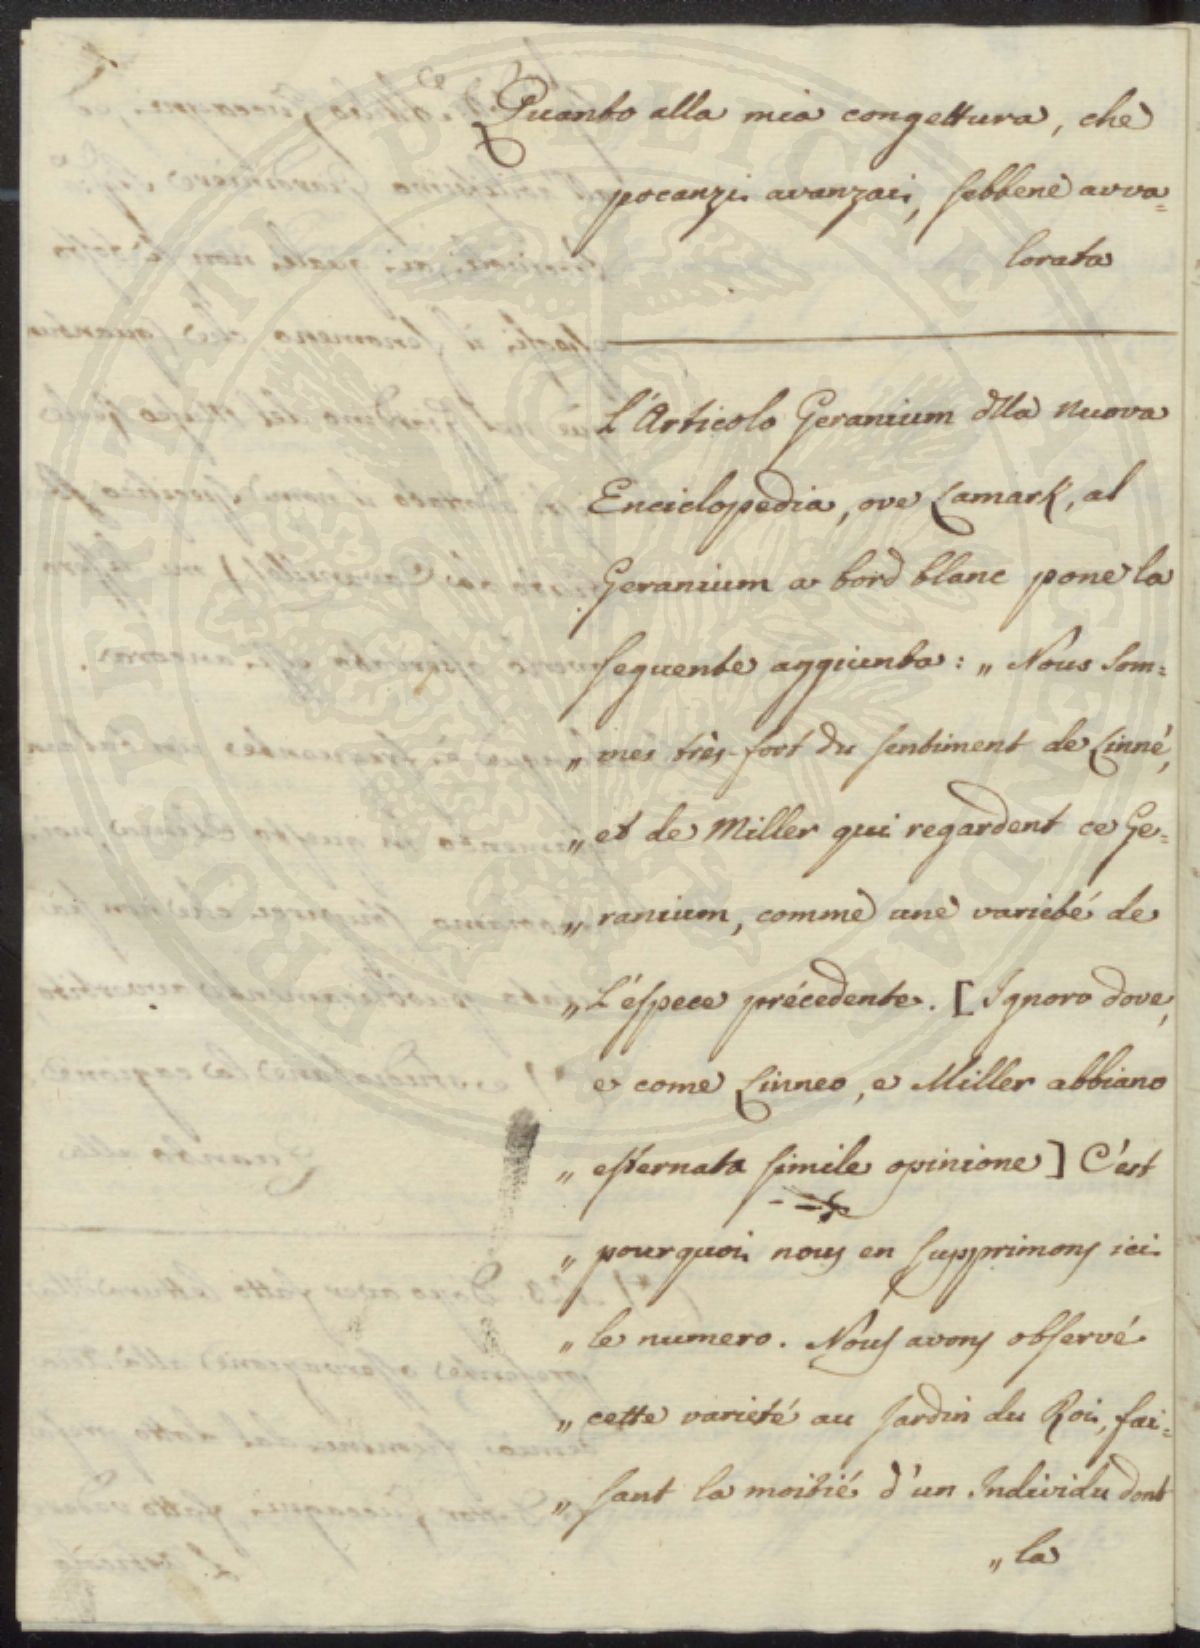 Quanto alla mia congettura, che
pocanzi avanzai, sebbene avva=
lorata
L'Articolo Geranium dlla nuova
Enciclopedia, ove Lamark, al
Geranium a bord blanc pone la
seguente aggiunta: „ Nous som=
„ mes très-fort du sentiment de Linné,
„ et de Miller qui regardent ce Ge=
„ ranium, comme une varieté de
„ L'éspece précedente. [Ignoro dove,
e come Linneo, e Miller abbiano
„ esternata simile opinione] C'est
„ pourquoi nous en supprimons ici
„ le numero. Nous avons observé
„ cette varieté au Jardin du Roi, fai=
„ sant la moitié d'un Individu dont
„ la